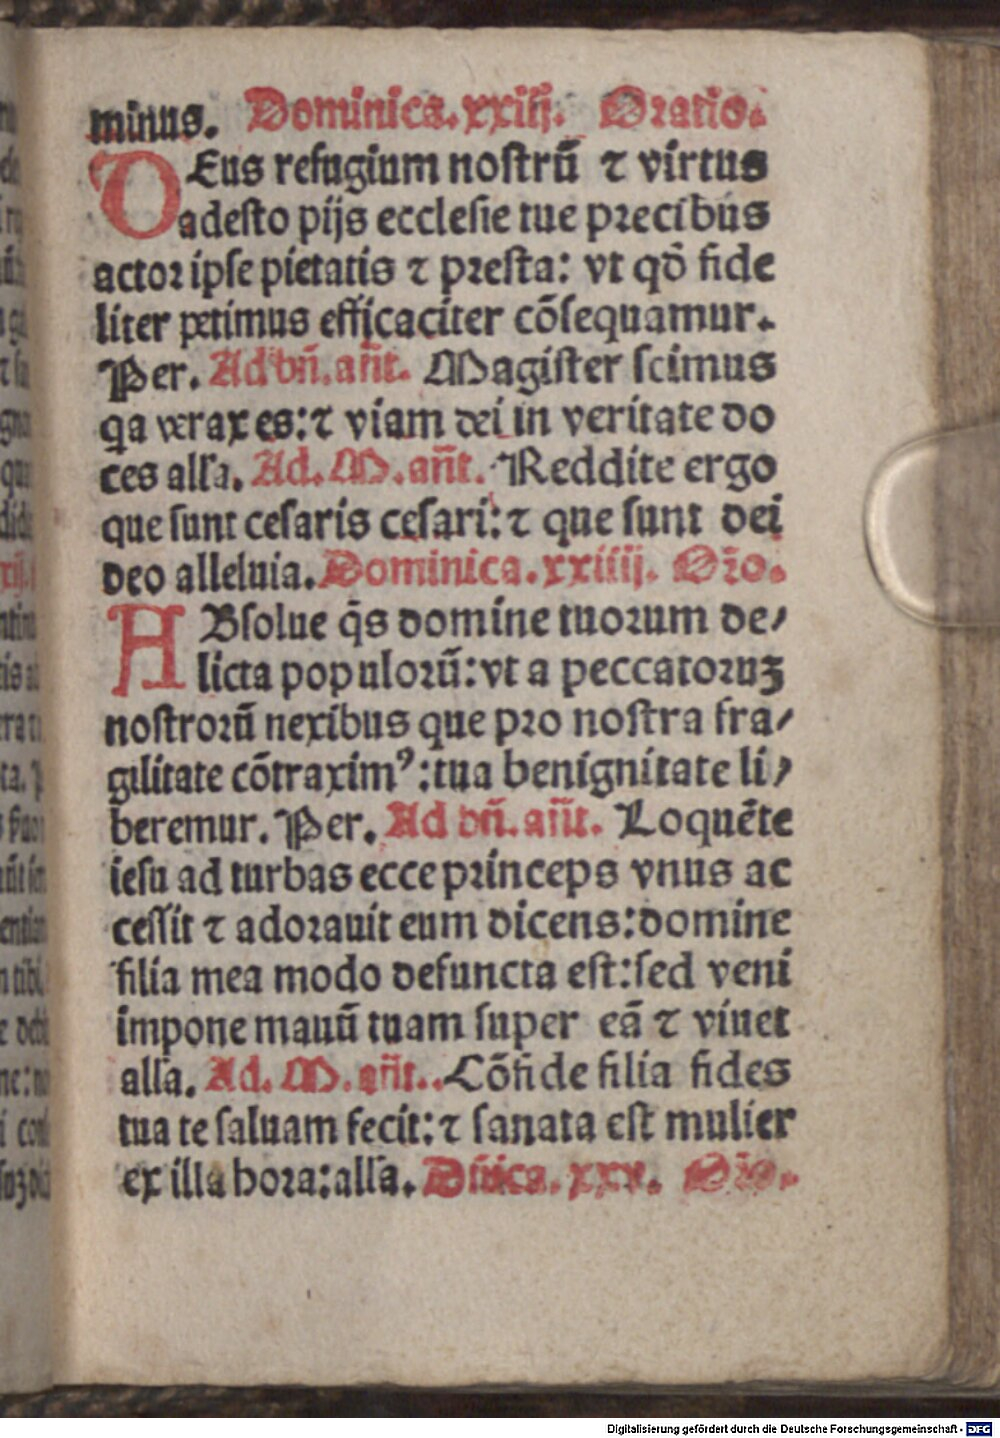 minus. Dominica.xxiij. Oratio.
DEus refugium nostrū ⁊ virtus
adesto pijs ecclesie tue precibus
actor ipse pietatis ⁊ presta: vt qď fide
liter petimus efficaciter cōsequamur.
Per. Ad bn̄.an̄t. Magister scimus
qa verax es:⁊ viam dei in veritate do
ces alla. Ad.M.an̄t. Reddite ergo
que sunt cesaris cesari:⁊ que sunt dei
deo alleluia. Dominica.xxiiij. Oro.
ABsolue q̄s domine tuorum de/
licta populorū:vt a peccatoruꝫ
nostrorū nexibus que pro nostra fra/
gilitate cōtraximꝰ:tua benignitate li/
beremur. Per. Ad bn̄.an̄t. Loquēte
iesu ad turbas ecce princeps vnus ac
cessit ⁊ adorauit eum dicens:domine
filia mea modo defuncta est:sed veni
impone mauū tuam super eā ⁊ viuet
alla. Ad.M.an̄t. Cōfide filia fides
tua te saluam fecit:⁊ sanata est mulier
ex illa hora:alla. Dn̄ica.xxv. Oro.
Digitalisierung gefördert durch die Deutsche Forschungsgemeinschaft - DFG